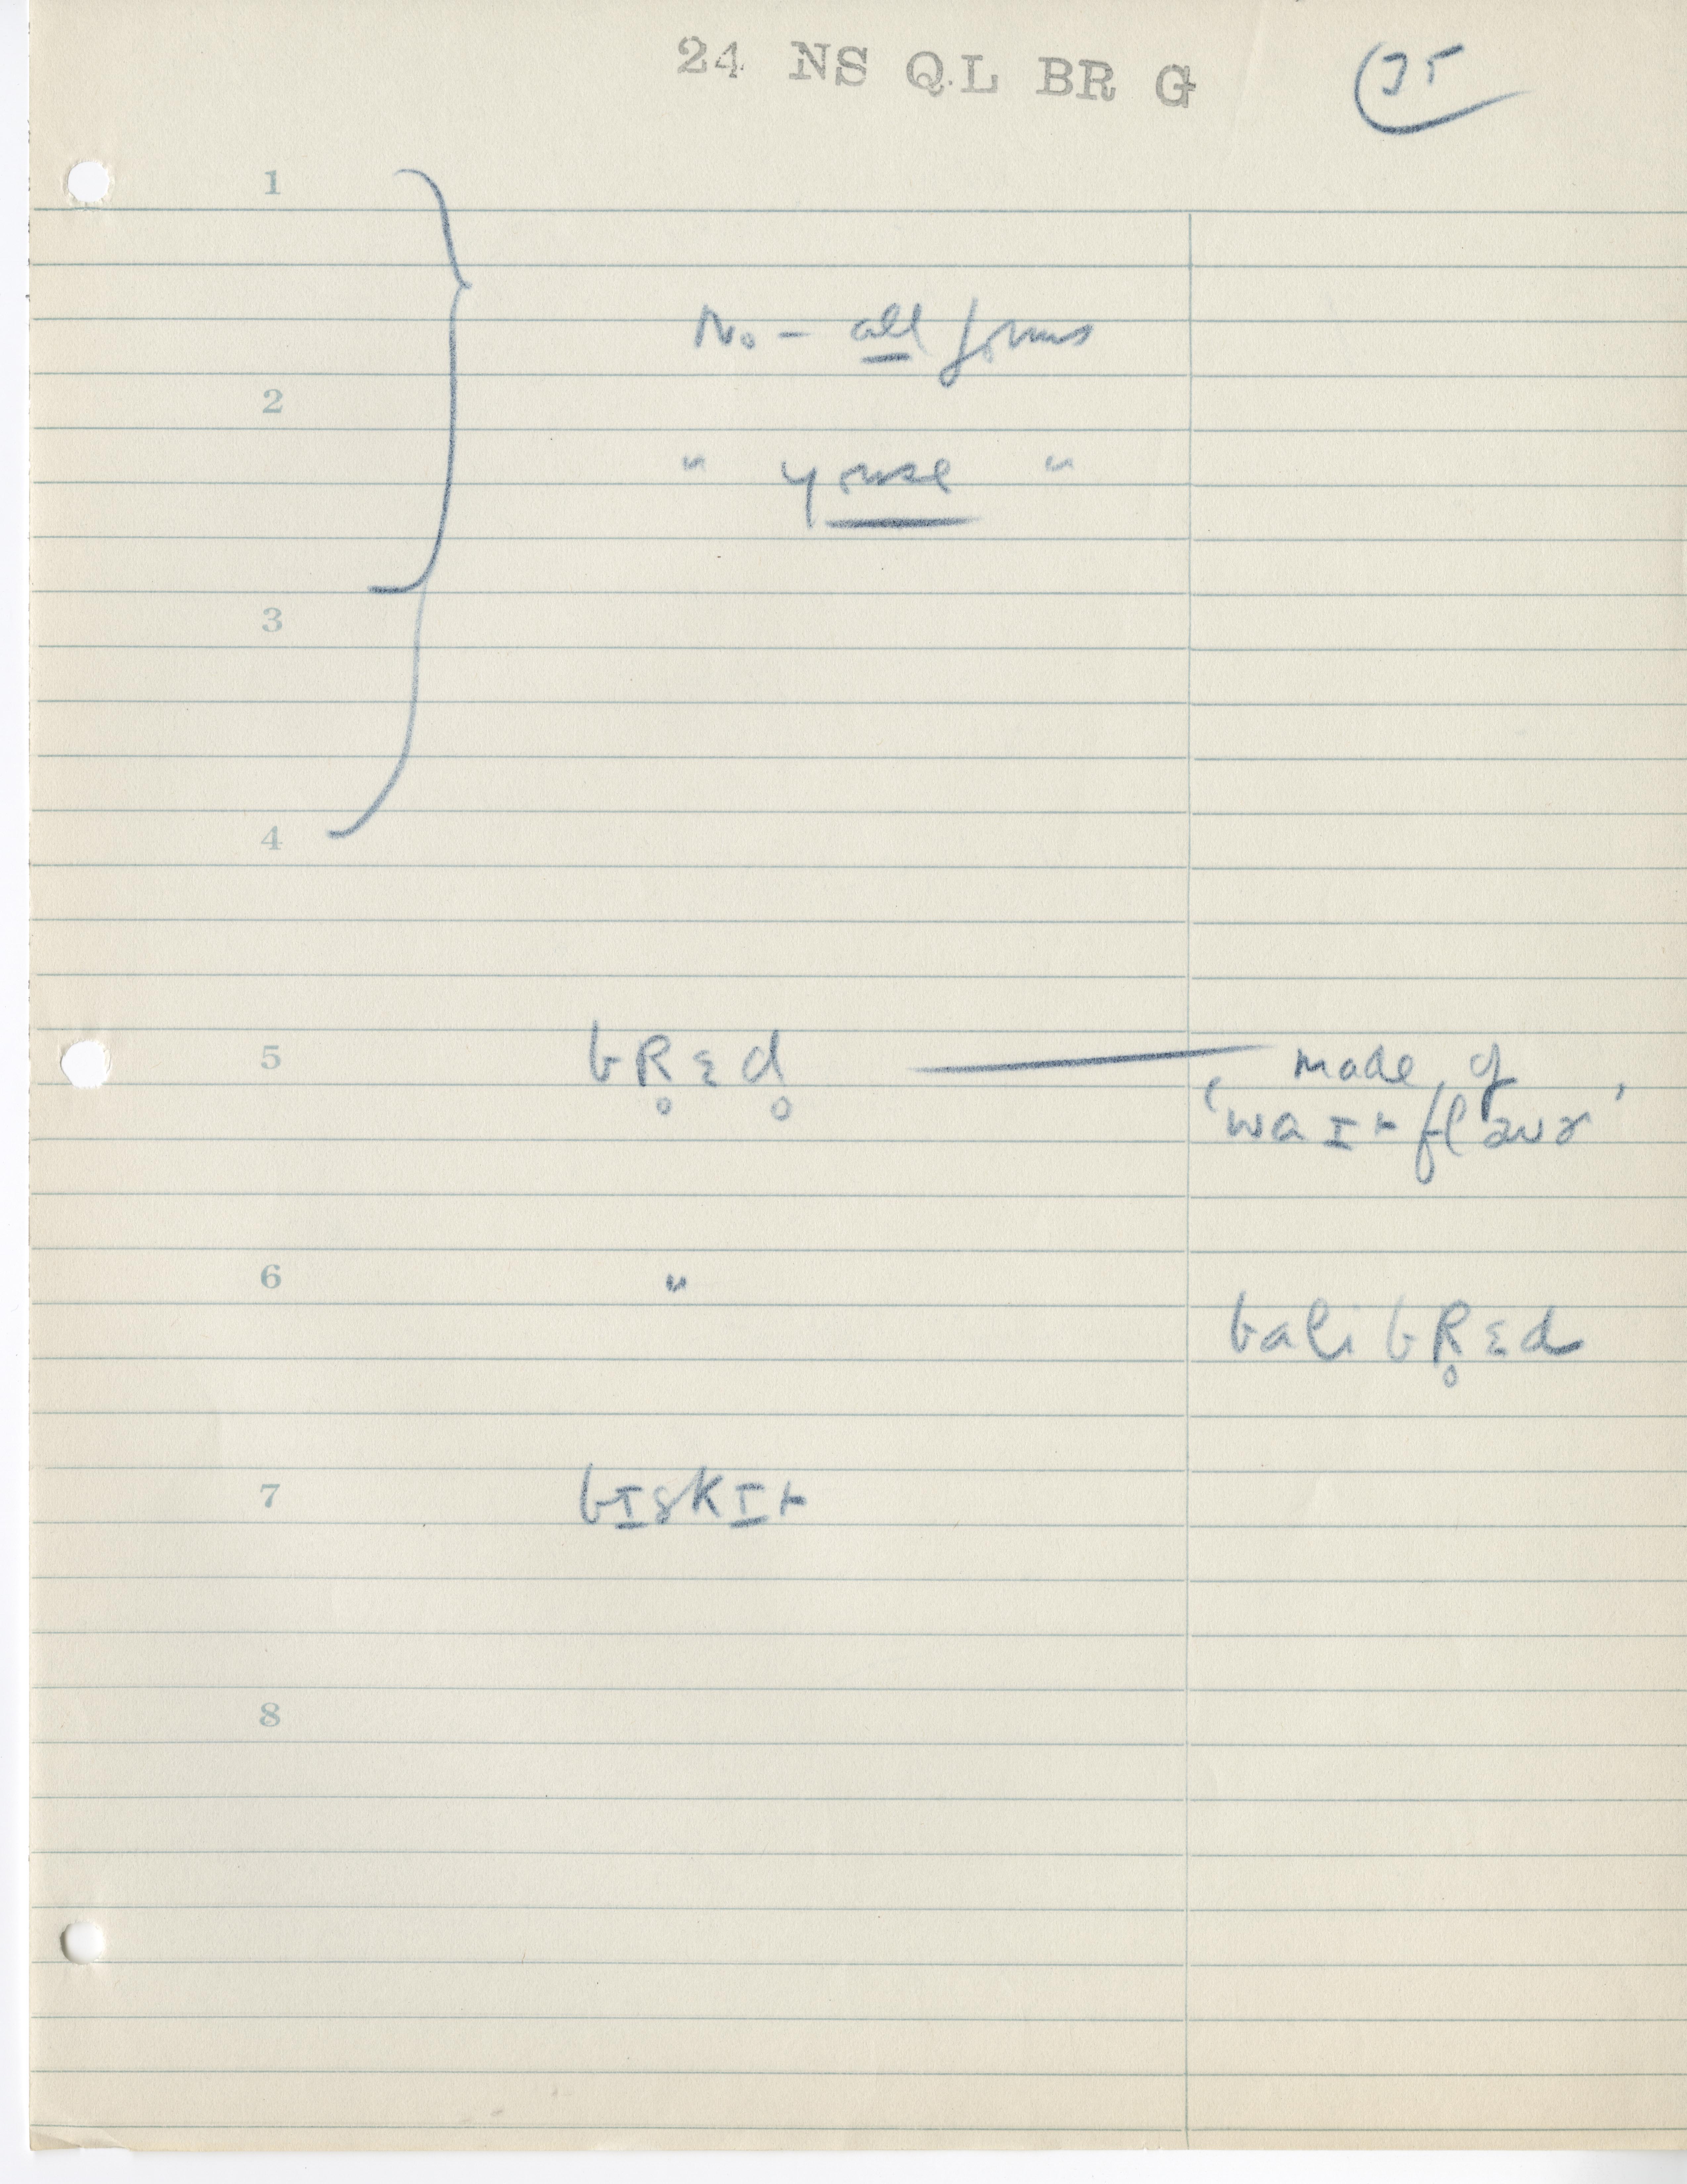 24 NS QL BR G
35
1
No - all forms
2
" youse "
3
4
5 bR̥ɛd̥ made of
'waɪt flauɚ'
6 "
bali bR̥ɛd
7 bɪskɪt
8